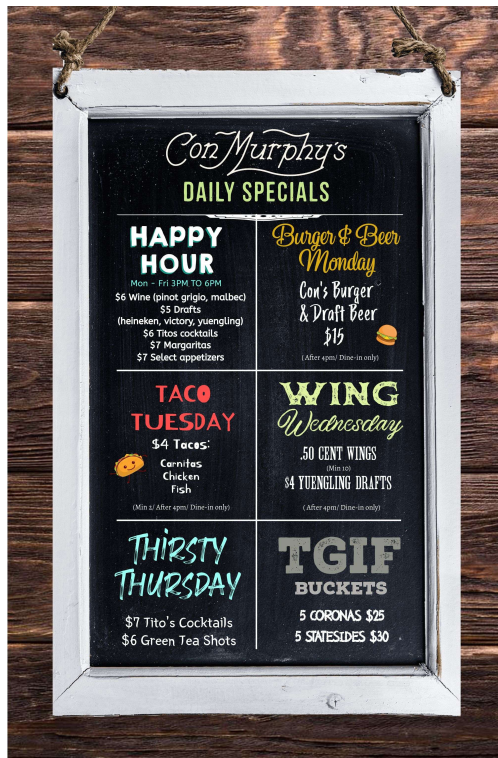 Con Murphy's
DAILY SPECIALS
HAPPY
HOUR
Mon - Fri 3PM TO 6PM
$6 Wine (pinot grigio, malbec)
$5 Drafts
(heineken, victory, yuengling)
$6 Titos cocktails
$7 Margaritas
$7 Select appetizers
Burger & Beer
Monday
Con's Burger
& Draft Beer
$15
(After 4pm/ Dine-in only)
TACO
TUESDAY
$4 Tacos:
Carnitas
Chicken
Fish
(Min 2/ After 4pm/ Dine-in only)
WING
Wednesday
.50 CENT WINGS
(Min 10)
$4 YUENGLING DRAFTS
( After 4pm/ Dine-in only)
THIRSTY
THURSDAY
$7 Tito's Cocktails
$6 Green Tea Shots
TGIF
BUCKETS
5 CORONAS $25
5 STATESIDES $30